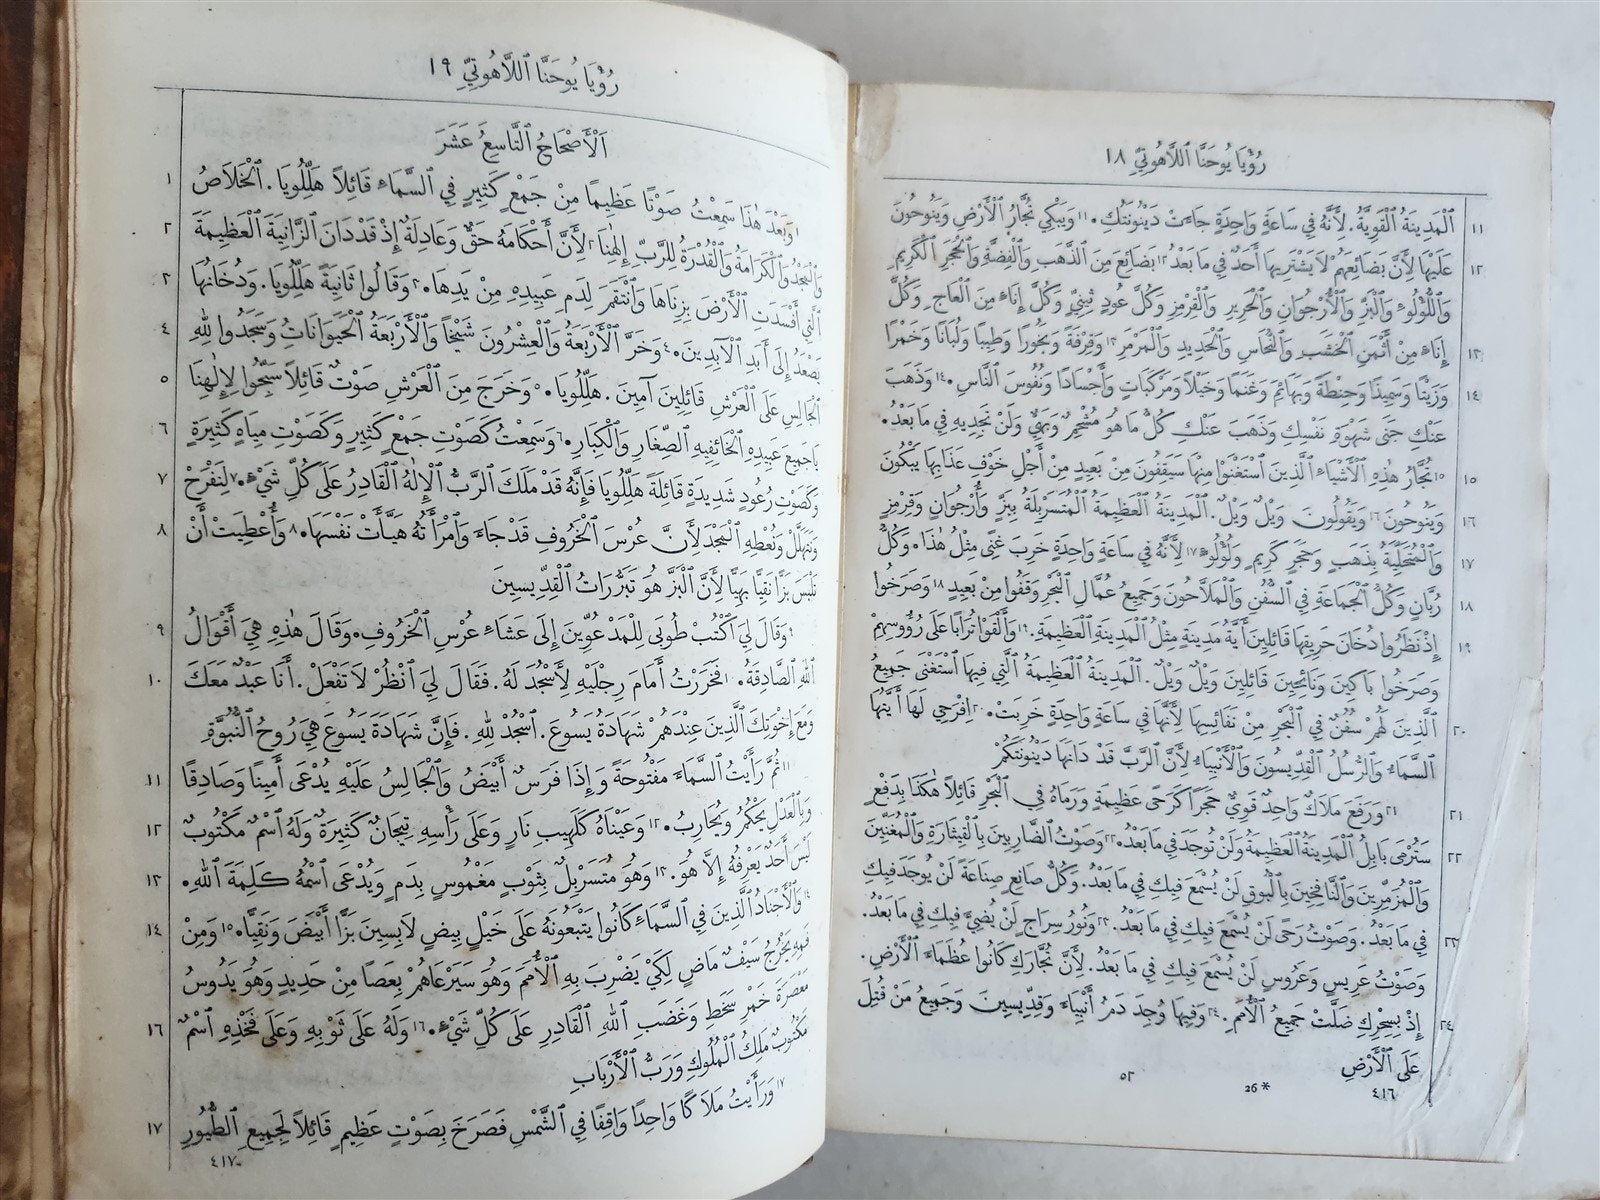 رُؤْيَا يُوحَنَّا ٱللَّاهُوتِيِّ ١٨
ٱلْمَدِينَةُ ٱلْقَوِيَّةُ. لِأَنَّهُ فِي سَاعَةٍ وَاحِدَةٍ جَاءَتْ دَيْنُونَتُكِ. ١١ وَيَبْكِي تُجَّارُ ٱلْأَرْضِ وَيَنُوحُونَ ١١
عَلَيْهَا لِأَنَّ بَضَائِعَهُمْ لَا يَشْتَرِيهَا أَحَدٌ فِي مَا بَعْدُ ١٢ بَضَائِعَ مِنَ ٱلذَّهَبِ وَٱلْفِضَّةِ وَٱلْحَجَرِ ٱلْكَرِيمِ ١٢
وَٱللُّؤْلُؤِ وَٱلْبَزِّ وَٱلْأُرْجُوانِ وَٱلْحَرِيرِ وَٱلْقِرْمِزِ وَكُلَّ عُودٍ ثِينِيٍّ وَكُلَّ إِنَاءٍ مِنَ ٱلْعَاجِ وَكُلَّ
إِنَاءٍ مِنْ أَثْمَنِ ٱلْخَشَبِ وَٱلنُّحَاسِ وَٱلْحَدِيدِ وَٱلْمَرْمَرِ ١٣ وَقِرْفَةً وَبَخُورًا وَطِيبًا وَلُبَانًا وَخَمْرًا ١٣
وَزَيْتًا وَسَمِيذًا وَحِنْطَةً وَبَهَائِمَ وَغَنَمًا وَخَيْلًا وَمَرْكَبَاتٍ وَأَجْسَادًا وَنُفُوسَ ٱلنَّاسِ. ١٤ وَذَهَبَ ١٤
عَنْكِ جَنَى شَهْوَةِ نَفْسِكِ وَذَهَبَ عَنْكِ كُلُّ مَا هُوَ مُشْحِمٌ وَبَهِيٌّ وَلَنْ تَجِدِيهِ فِي مَا بَعْدُ.
١٥ تُجَّارُ هٰذِهِ ٱلْأَشْيَاءِ ٱلَّذِينَ ٱسْتَغْنَوْا مِنْهَا سَيَقِفُونَ مِنْ بَعِيدٍ مِنْ أَجْلِ خَوْفِ عَذَابِهَا يَبْكُونَ ١٥
وَيَنُوحُونَ ١٦ وَيَقُولُونَ وَيْلٌ وَيْلٌ. ٱلْمَدِينَةُ ٱلْعَظِيمَةُ ٱلْمُتَسَرْبِلَةُ بِبَزٍّ وَأُرْجُوانٍ وَقِرْمِزٍ ١٦
وَٱلْمُتَحَلِّيَةُ بِذَهَبٍ وَحَجَرٍ كَرِيمٍ وَلُؤْلُوءٍ ١٧ لِأَنَّهُ فِي سَاعَةٍ وَاحِدَةٍ خَرِبَ غِنًى مِثْلُ هٰذَا. وَكُلُّ ١٧
رُبَّانٍ وَكُلُّ ٱلْجَمَاعَةِ فِي ٱلسُّفُنِ وَٱلْمَلَّاحُونَ وَجَمِيعُ عُمَّالِ ٱلْبَحْرِ وَقَفُوا مِنْ بَعِيدٍ ١٨ وَصَرَخُوا ١٨
إِذْ نَظَرُوا دُخَانَ حَرِيقِهَا قَائِلِينَ أَيَّةُ مَدِينَةٍ مِثْلُ ٱلْمَدِينَةِ ٱلْعَظِيمَةِ. ١٩ وَأَلْقَوْا تُرَابًا عَلَى رُؤُوسِهِمْ ١٩
وَصَرَخُوا بَاكِينَ وَنَائِحِينَ قَائِلِينَ وَيْلٌ وَيْلٌ. ٱلْمَدِينَةُ ٱلْعَظِيمَةُ ٱلَّتِي فِيهَا ٱسْتَغْنَى جَمِيعُ
ٱلَّذِينَ لَهُمْ سُفُنٌ فِي ٱلْبَحْرِ مِنْ نَفَائِسِهَا لِأَنَّهَا فِي سَاعَةٍ وَاحِدَةٍ خَرِبَتْ. ٢٠ اِفْرَحِي لَهَا أَيَّتُهَا ٢٠
ٱلسَّمَاءُ وَٱلرُّسُلُ ٱلْقِدِّيسُونَ وَٱلْأَنْبِيَاءُ لِأَنَّ ٱلرَّبَّ قَدْ دَانَهَا دَيْنُونَتَكُمْ
٢١ وَرَفَعَ مَلَاكٌ وَاحِدٌ قَوِيٌّ حَجَرًا كَرَحًى عَظِيمَةٍ وَرَمَاهُ فِي ٱلْبَحْرِ قَائِلًا هٰكَذَا بِدَفْعٍ ٢١
سَتُرْمَى بَابِلُ ٱلْمَدِينَةُ ٱلْعَظِيمَةُ وَلَنْ تُوجَدَ فِي مَا بَعْدُ. ٢٢ وَصَوْتُ ٱلضَّارِبِينَ بِٱلْقِيثَارَةِ وَٱلْمُغَنِّينَ ٢٢
وَٱلْمُزَمِّرِينَ وَٱلنَّافِخِينَ بِٱلْبُوقِ لَنْ يُسْمَعَ فِيكِ فِي مَا بَعْدُ. وَكُلُّ صَانِعٍ صِنَاعَةً لَنْ يُوجَدَ فِيكِ
فِي مَا بَعْدُ. وَصَوْتُ رَحًى لَنْ يُسْمَعَ فِيكِ فِي مَا بَعْدُ. ٢٣ وَنُورُ سِرَاجٍ لَنْ يُضِيءَ فِيكِ فِي مَا بَعْدُ. ٢٣
وَصَوْتُ عَرِيسٍ وَعَرُوسٍ لَنْ يُسْمَعَ فِيكِ فِي مَا بَعْدُ. لِأَنَّ تُجَّارَكِ كَانُوا عُظَمَاءَ ٱلْأَرْضِ.
إِذْ بِسِحْرِكِ ضَلَّتْ جَمِيعُ ٱلْأُمَمِ. ٢٤ وَفِيهَا وُجِدَ دَمُ أَنْبِيَاءَ وَقِدِّيسِينَ وَجَمِيعِ مَنْ قُتِلَ ٢٤
عَلَى ٱلْأَرْضِ
٤١٦ 26* ٥٢
رُؤْيَا يُوحَنَّا ٱللَّاهُوتِيِّ ١٩
اَلْأَصْحَاحُ ٱلتَّاسِعُ عَشَرَ
١ وَبَعْدَ هٰذَا سَمِعْتُ صَوْتًا عَظِيمًا مِنْ جَمْعٍ كَثِيرٍ فِي ٱلسَّمَاءِ قَائِلًا هَلِّلُويَا. ٱلْخَلَاصُ ١
وَٱلْمَجْدُ وَٱلْكَرَامَةُ وَٱلْقُدْرَةُ لِلرَّبِّ إِلٰهِنَا ٢ لِأَنَّ أَحْكَامَهُ حَقٌّ وَعَادِلَةٌ إِذْ قَدْ دَانَ ٱلزَّانِيَةَ ٱلْعَظِيمَةَ ٢
ٱلَّتِي أَفْسَدَتِ ٱلْأَرْضَ بِزِنَاهَا وَٱنْتَقَمَ لِدَمِ عَبِيدِهِ مِنْ يَدِهَا. ٣ وَقَالُوا ثَانِيَةً هَلِّلُويَا. وَدُخَانُهَا ٣
يَصْعَدُ إِلَى أَبَدِ ٱلْآبِدِينَ. ٤ وَخَرَّ ٱلْأَرْبَعَةُ وَٱلْعِشْرُونَ شَيْخًا وَٱلْأَرْبَعَةُ ٱلْحَيَوَانَاتُ وَسَجَدُوا لِلّٰهِ ٤
ٱلْجَالِسِ عَلَى ٱلْعَرْشِ قَائِلِينَ آمِينَ. هَلِّلُويَا. ٥ وَخَرَجَ مِنَ ٱلْعَرْشِ صَوْتٌ قَائِلًا سَبِّحُوا لِإِلٰهِنَا ٥
يَا جَمِيعَ عَبِيدِهِ ٱلْخَائِفِيهِ ٱلصِّغَارِ وَٱلْكِبَارِ. ٦ وَسَمِعْتُ كَصَوْتِ جَمْعٍ كَثِيرٍ وَكَصَوْتِ مِيَاهٍ كَثِيرَةٍ ٦
وَكَصَوْتِ رُعُودٍ شَدِيدَةٍ قَائِلَةً هَلِّلُويَا فَإِنَّهُ قَدْ مَلَكَ ٱلرَّبُّ ٱلْإِلٰهُ ٱلْقَادِرُ عَلَى كُلِّ شَيْءٍ. ٧ لِنَفْرَحْ ٧
وَنَتَهَلَّلْ وَنُعْطِهِ ٱلْمَجْدَ لِأَنَّ عُرْسَ ٱلْخَرُوفِ قَدْ جَاءَ وَٱمْرَأَتُهُ هَيَّأَتْ نَفْسَهَا. ٨ وَأُعْطِيَتْ أَنْ ٨
تَلْبَسَ بَزًّا نَقِيًّا بَهِيًّا لِأَنَّ ٱلْبَزَّ هُوَ تَبَرُّرَاتُ ٱلْقِدِّيسِينَ
٩ وَقَالَ لِيَ ٱكْتُبْ طُوبَى لِلْمَدْعُوِّينَ إِلَى عَشَاءِ عُرْسِ ٱلْخَرُوفِ. وَقَالَ هٰذِهِ هِيَ أَقْوَالُ ٩
ٱللّٰهِ ٱلصَّادِقَةُ. ١٠ فَخَرَرْتُ أَمَامَ رِجْلَيْهِ لِأَسْجُدَ لَهُ. فَقَالَ لِيَ ٱنْظُرْ لَا تَفْعَلْ. أَنَا عَبْدٌ مَعَكَ ١٠
وَمَعَ إِخْوَتِكَ ٱلَّذِينَ عِنْدَهُمْ شَهَادَةُ يَسُوعَ. ٱسْجُدْ لِلّٰهِ. فَإِنَّ شَهَادَةَ يَسُوعَ هِيَ رُوحُ ٱلنُّبُوَّةِ
١١ ثُمَّ رَأَيْتُ ٱلسَّمَاءَ مَفْتُوحَةً وَإِذَا فَرَسٌ أَبْيَضُ وَٱلْجَالِسُ عَلَيْهِ يُدْعَى أَمِينًا وَصَادِقًا ١١
وَبِٱلْعَدْلِ يَحْكُمُ وَيُحَارِبُ. ١٢ وَعَيْنَاهُ كَلَهِيبِ نَارٍ وَعَلَى رَأْسِهِ تِيجَانٌ كَثِيرَةٌ وَلَهُ ٱسْمٌ مَكْتُوبٌ ١٢
لَيْسَ أَحَدٌ يَعْرِفُهُ إِلَّا هُوَ. ١٣ وَهُوَ مُتَسَرْبِلٌ بِثَوْبٍ مَغْمُوسٍ بِدَمٍ وَيُدْعَى ٱسْمُهُ كَلِمَةَ ٱللّٰهِ. ١٣
١٤ وَٱلْأَجْنَادُ ٱلَّذِينَ فِي ٱلسَّمَاءِ كَانُوا يَتْبَعُونَهُ عَلَى خَيْلٍ بِيضٍ لَابِسِينَ بَزًّا أَبْيَضَ وَنَقِيًّا. ١٥ وَمِنْ ١٤
فَمِهِ يَخْرُجُ سَيْفٌ مَاضٍ لِكَيْ يَضْرِبَ بِهِ ٱلْأُمَمَ وَهُوَ سَيَرْعَاهُمْ بِعَصًا مِنْ حَدِيدٍ وَهُوَ يَدُوسُ
مَعْصَرَةَ خَمْرِ سَخَطِ وَغَضَبِ ٱللّٰهِ ٱلْقَادِرِ عَلَى كُلِّ شَيْءٍ. ١٦ وَلَهُ عَلَى ثَوْبِهِ وَعَلَى فَخْذِهِ ٱسْمٌ ١٦
مَكْتُوبٌ مَلِكُ ٱلْمُلُوكِ وَرَبُّ ٱلْأَرْبَابِ
١٧ وَرَأَيْتُ مَلَاكًا وَاحِدًا وَاقِفًا فِي ٱلشَّمْسِ فَصَرَخَ بِصَوْتٍ عَظِيمٍ قَائِلًا لِجَمِيعِ ٱلطُّيُورِ ١٧
٤١٧